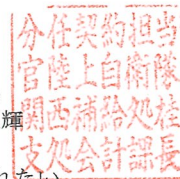 分任契約担当
官陸上自衛隊
関西補給処桂
支処会計課長
輝